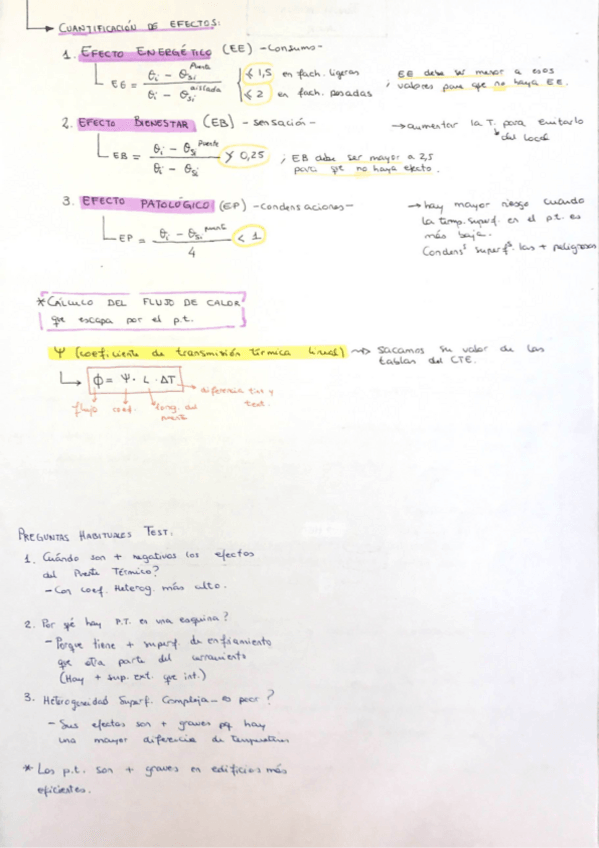 CUANTIFICACIÓN DE EFECTOS:
1. EFECTO ENERGÉTICO (EE) -Consumo-
EE = θi - θsi Puente / θi - θsi aislada { ≤ 1,5 en fach. ligeras
≤ 2 en fach. pesadas
EE debe ser menor a esos
; valores para que no haya EE.
2. EFECTO BIENESTAR (EB) - sensación -
→ aumentar la T. para evitarlo
↳ del local
EB = θi - θsi Puente / θi - θsi > 0,25 ; EB debe ser mayor a 2,5
para que no haya efecto.
3. EFECTO PATOLÓGICO (EP) -Condensaciones-
→ hay mayor riesgo cuando
la temp. superf. en el p.t. es
más baja.
Condens^s superf^s. las + peligrosas
EP = θi - θsi puent / 4 < 1
* CÁLCULO DEL FLUJO DE CALOR
que escapa por el p.t.
Ψ (coeficiente de transmisión térmica lineal) → Sacamos su valor de las
tablas del CTE.
↳ ϕ = Ψ · L · ΔT
→ diferencia tint y
text.
flujo coef. long. del
puente
PREGUNTAS HABITUALES TEST:
1. Cuándo son + negativos los efectos
del Puente Térmico?
- Con coef. Heterog. más alto.
2. Por qué hay P.T. en una esquina?
- Porque tiene + superf. de enfriamiento
que otra parte del cerramiento
(Hay + sup. ext. que int.)
3. Heterogeneidad Superf. Compleja... es peor?
- Sus efectos son + graves pq hay
una mayor diferencia de temperaturas
* Los p.t. son + graves en edificios más
eficientes.